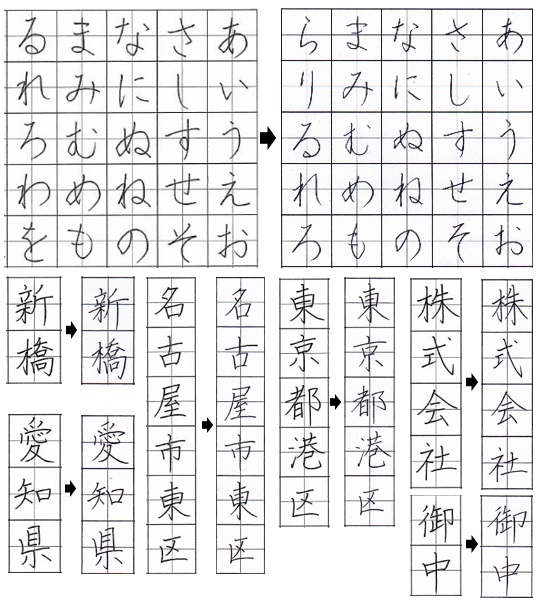 あいうえお
さしすせそ
なにぬねの
まみむめも
るれろわを
あいうえお
さしすせそ
なにぬねの
まみむめも
らりるれろ
新橋
新橋
愛知県
愛知県
名古屋市東区
名古屋市東区
東京都港区
東京都港区
株式会社
株式会社
御中
御中